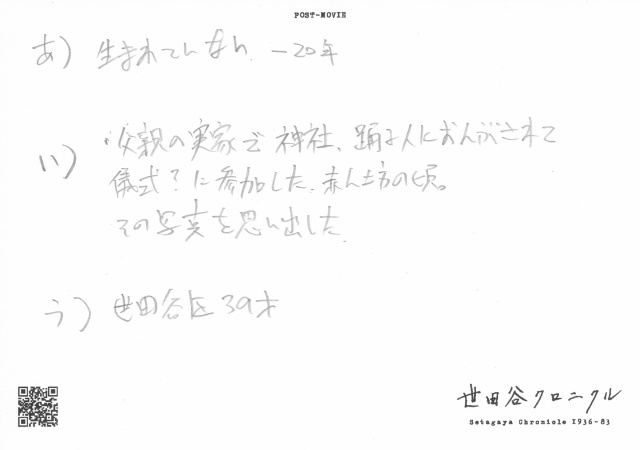 POST-MOVIE
あ) 生まれてない -20年
い) ・父親の実家で神社、踊る人におんぶされて
儀式?に参加した。赤ん坊の頃。
その写真を思い出した
う) 世田谷区 39才
世田谷クロニクル
Setagaya Chronicle 1936-83